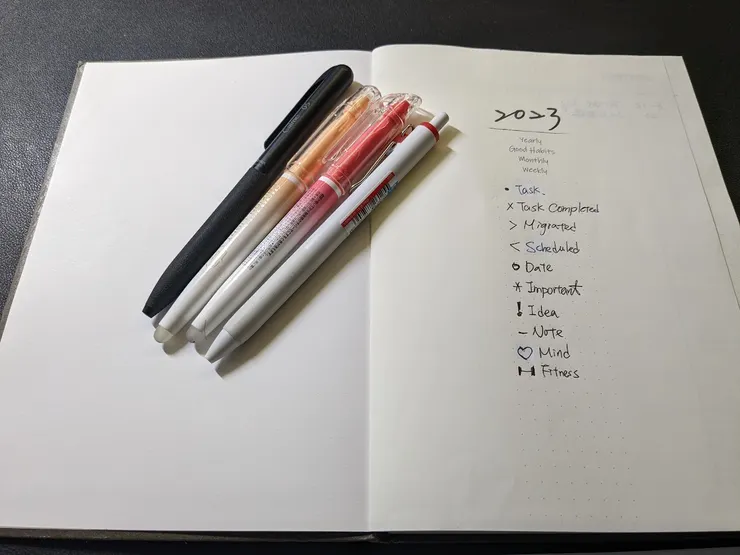 2023
Yearly
Good Habits
Monthly
Weekly
• Task.
x Task Completed
> Migrated
< Scheduled
o Date
* Important
! Idea
- Note
♡ Mind
H Fitness